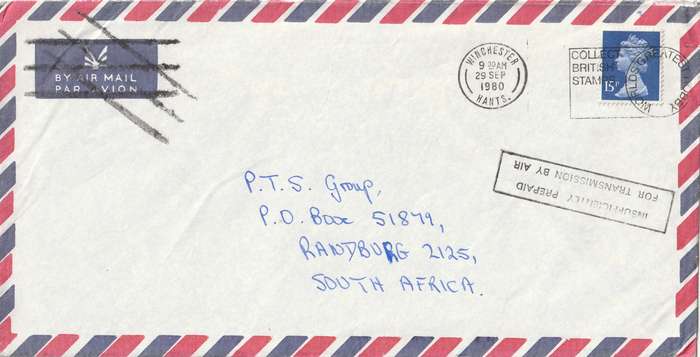 BY AIR MAIL
PAR AVION
WINCHESTER
9 30 AM
29 SEP
1980
HANTS.
COLLECT
BRITISH
STAMPS
WORLDS GREATEST HOBBY
15P
INSUFFICIENTLY PREPAID
FOR TRANSMISSION BY AIR
P.T.S. Group,
P.O. Box 51879,
RANDBURG 2125,
SOUTH AFRICA.